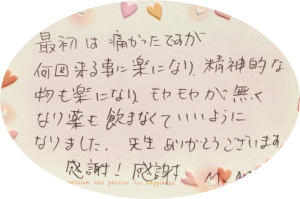 最初は痛かったですが
何回来る事に楽になり、精神的な
物も楽になり、モヤモヤが無く
なり薬も飲まなくていいように
なりました。先生ありがとうございます
感謝！感謝